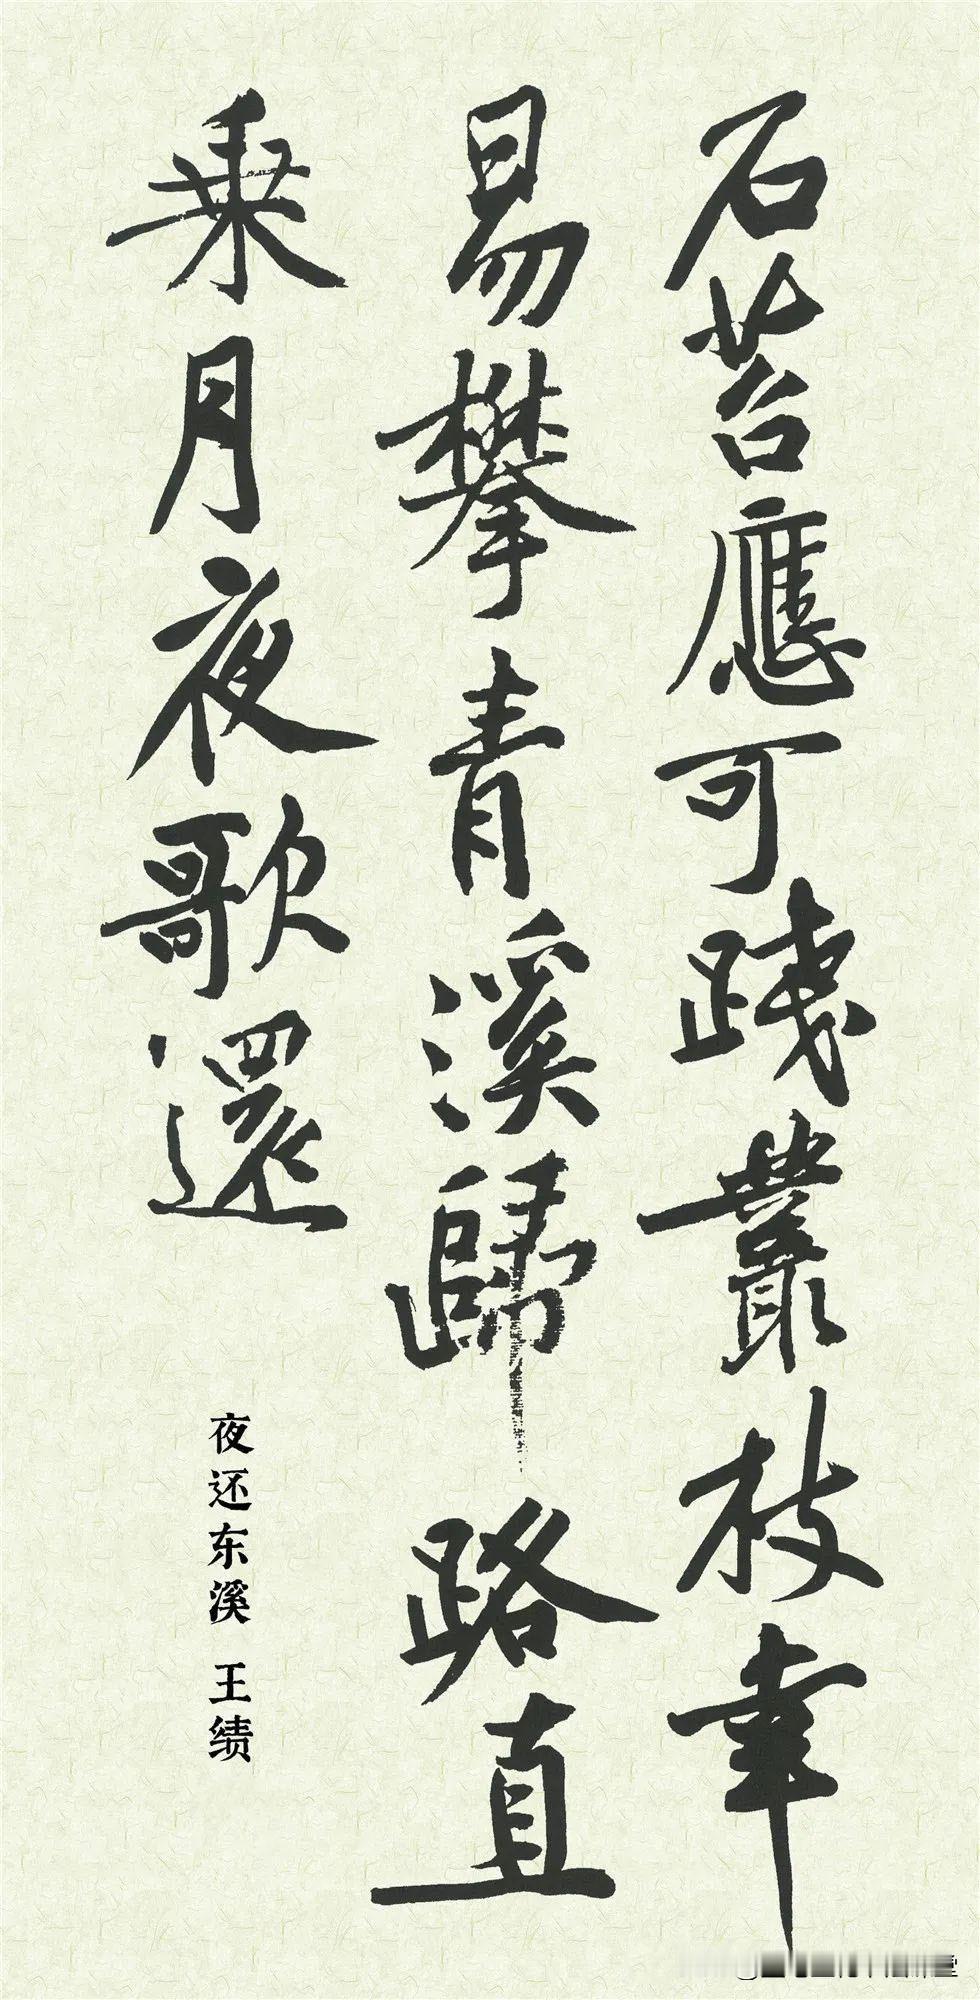 石苔應可踐叢枝幸
易攀青溪歸路直
乗月夜歌還
夜还东溪 王绩